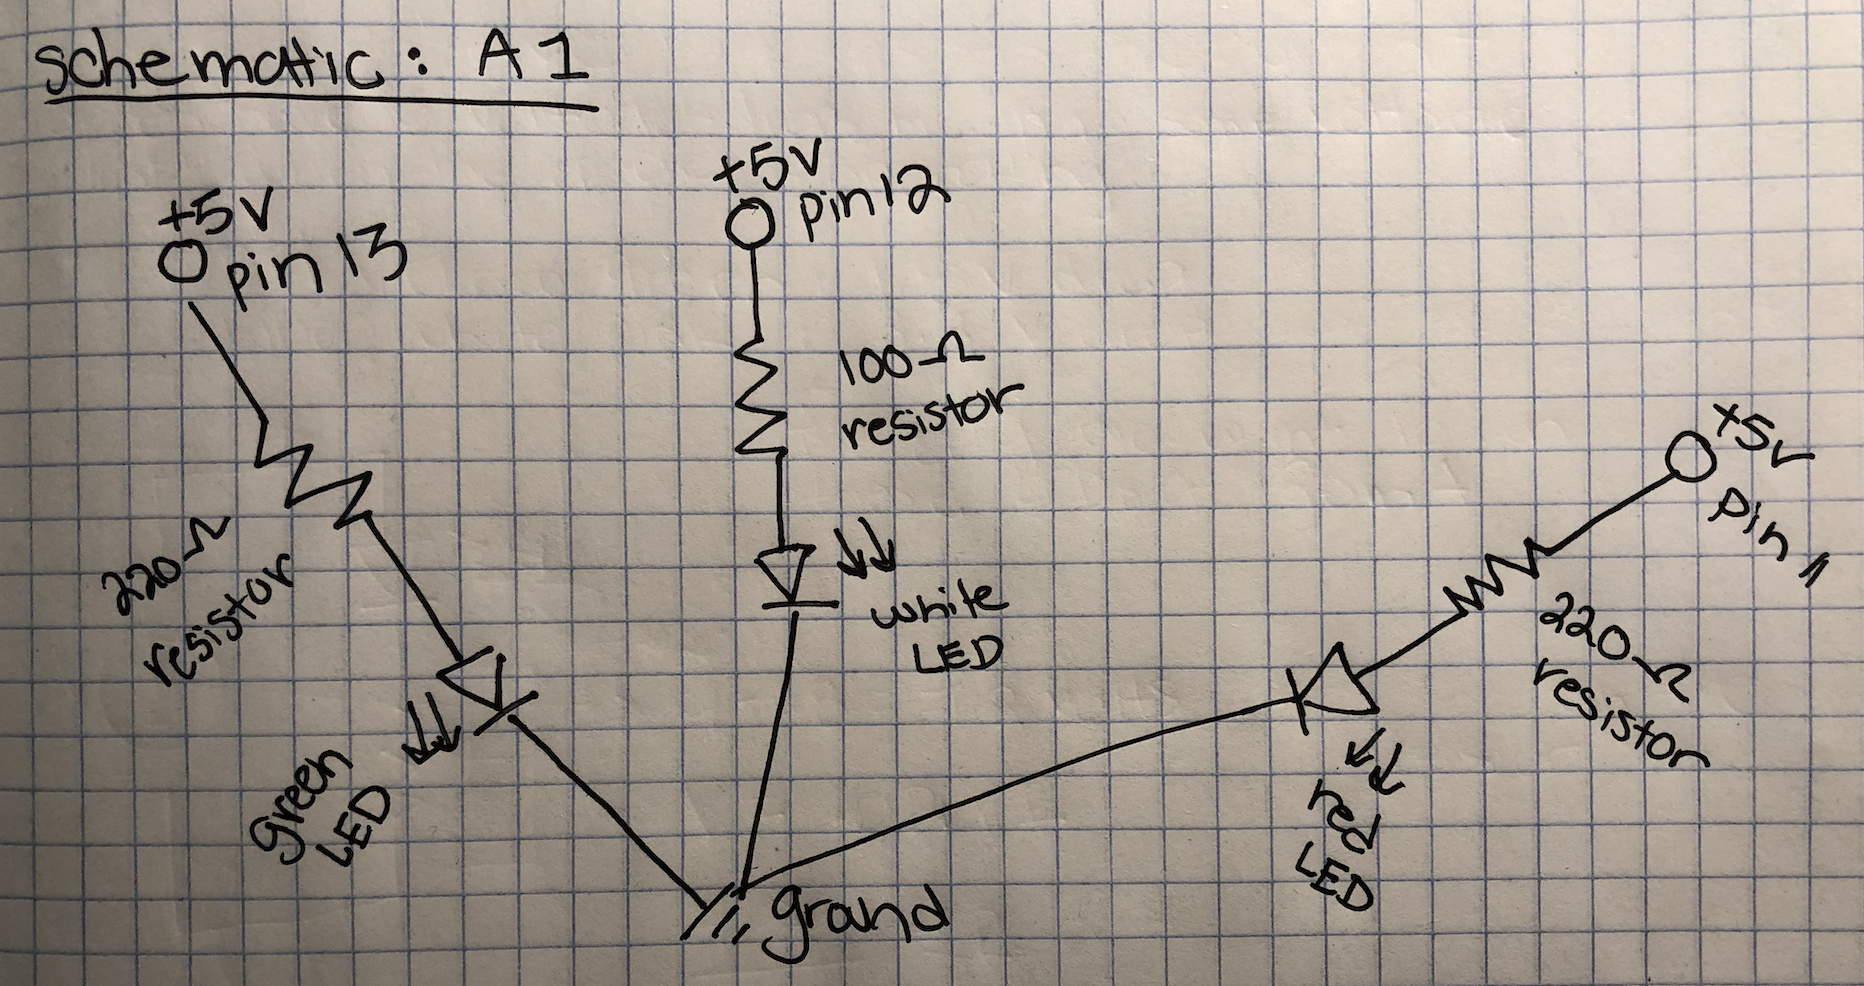 schematic: A1
+5V
pin 13
220Ω
resistor
green
LED
+5V
pin 12
100Ω
resistor
white
LED
+5V
pin 11
220Ω
resistor
red
LED
ground